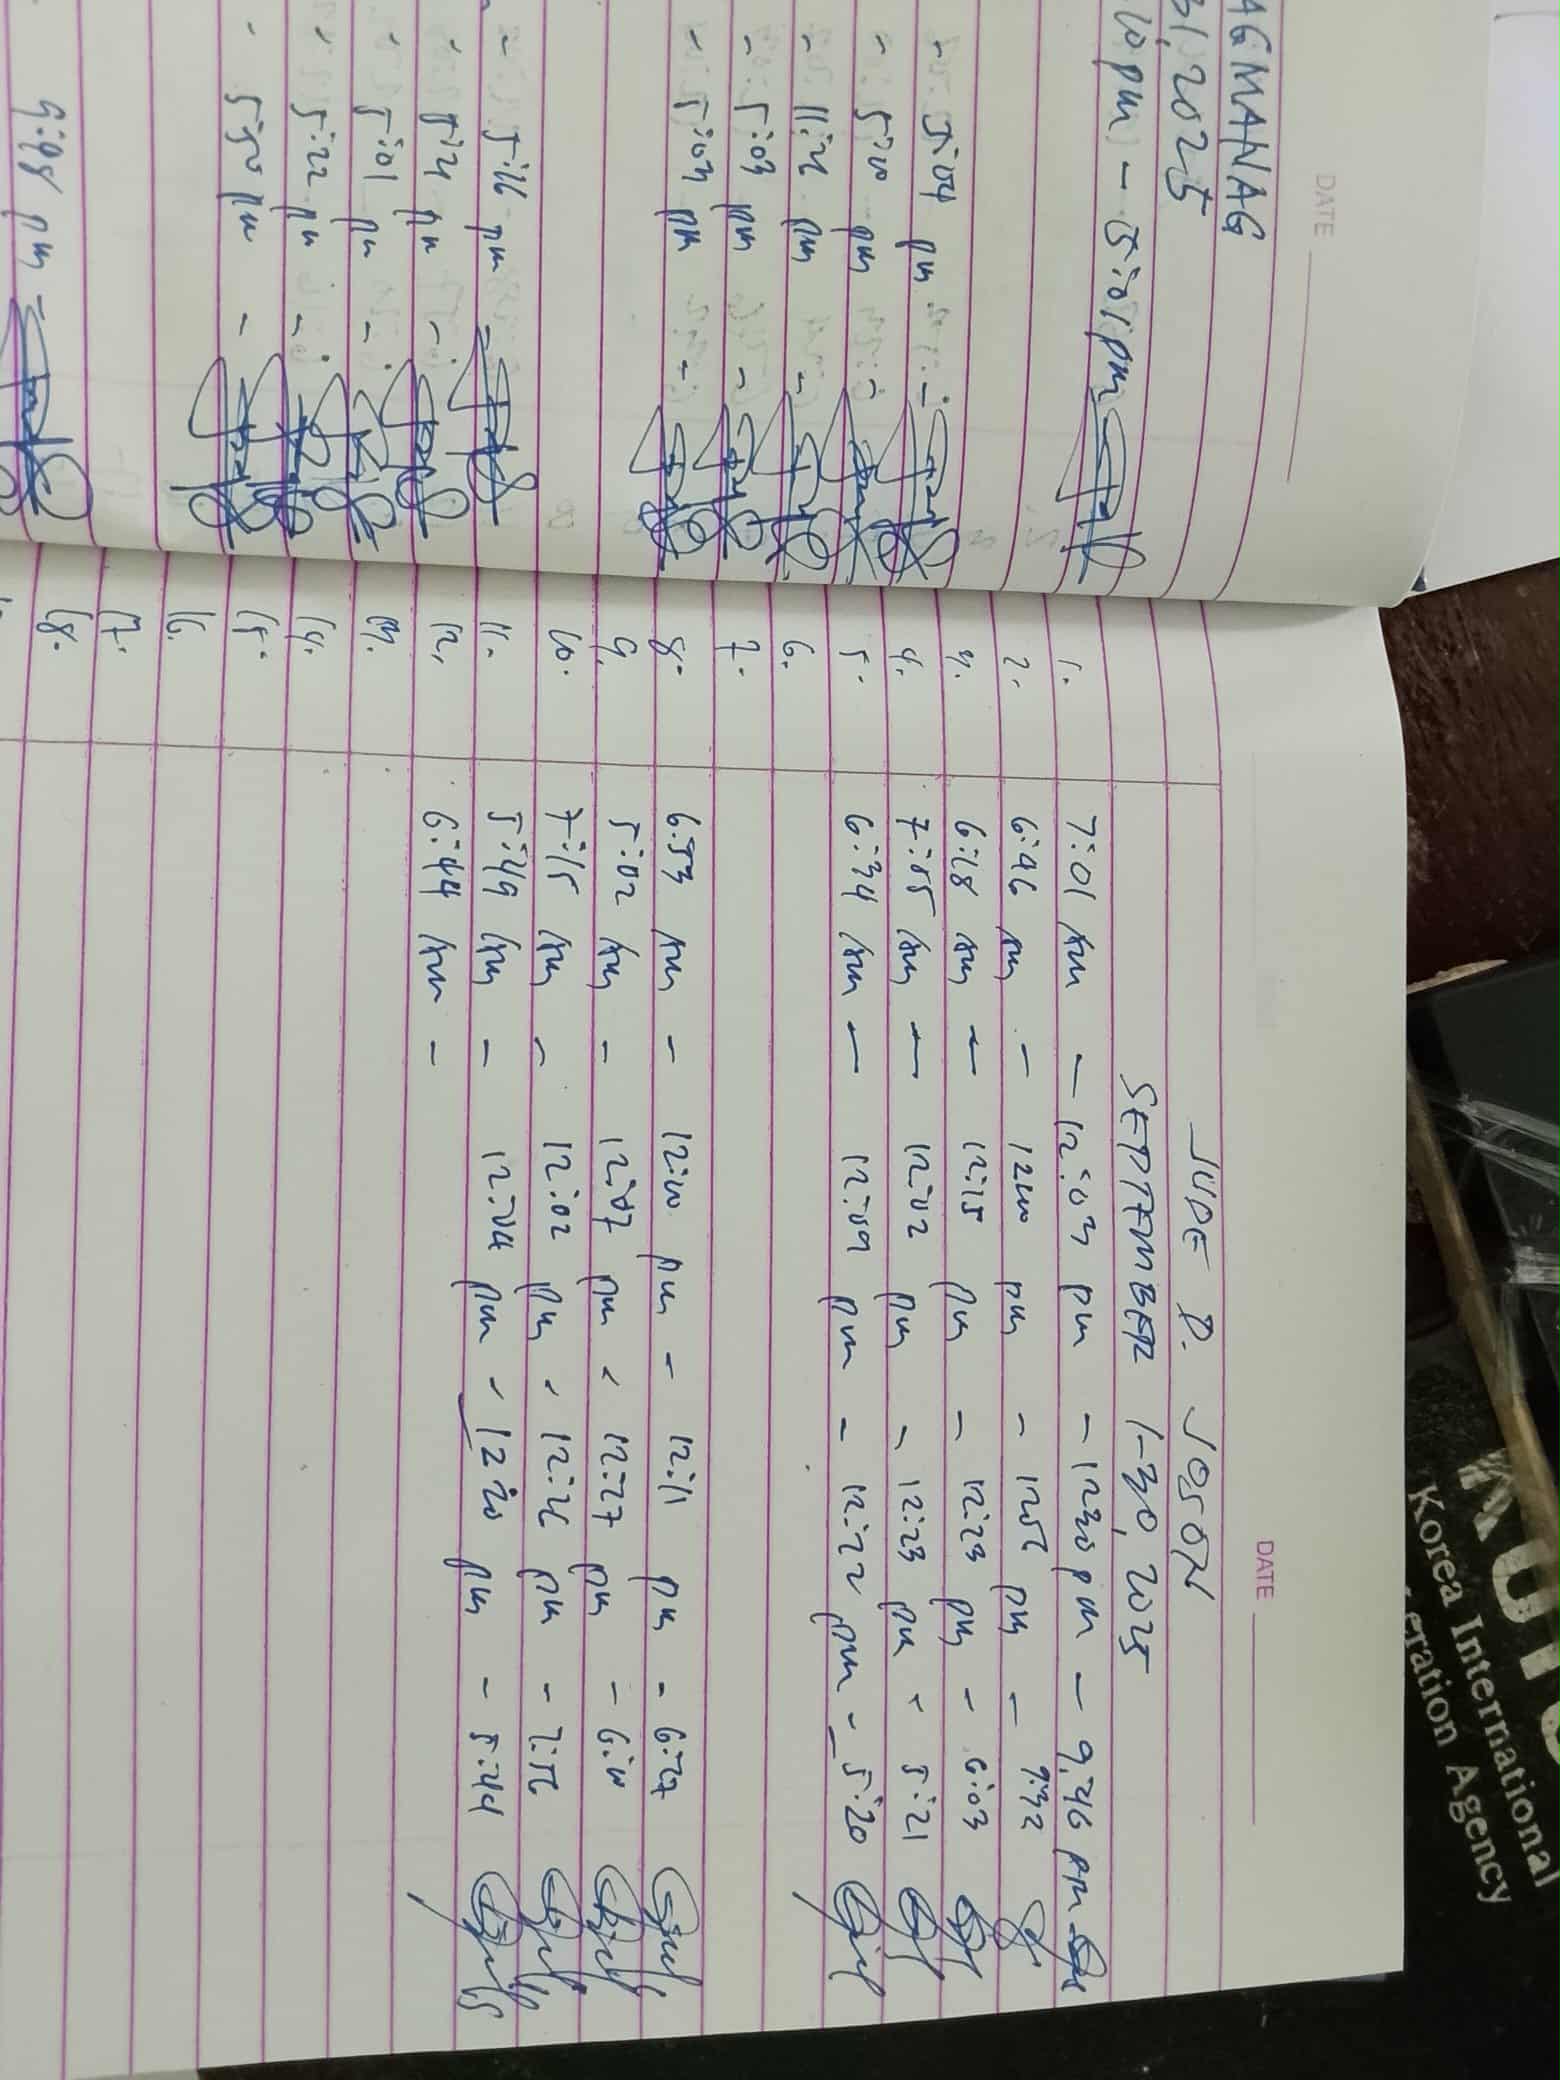 AGMANAG
31, 2025
10 pm - 5:01 pm
- 5:04 pm -
- 5:20 pm -
- 11:21 pm -
- 5:03 pm -
- 5:03 pm -
- 5:16 pm -
- 5:21 pm -
- 5:01 pm -
- 5:22 pm -
- 5:50 pm -
9:48 pm -
DATE
DATE
JUDE P. JOSON
SEPTEMBER 1-30, 2025
1. 7:01 am - 12:03 pm - 12:30 pm - 9:46 pm
2. 6:46 am - 12:00 pm - pm - 9:32
3. 6:28 am - 12:15 pm - 12:23 pm - 6:03
4. 7:05 am - 12:02 pm - 12:23 pm - 5:21
5. 6:34 am - 12:09 pm - 12:22 pm - 5:20
6.
7.
8. 6:53 am - 12:10 pm - 12:11 pm - 6:27
9. 5:02 am - 12:07 pm - 12:27 pm - 6:10
10. 7:15 am - 12:02 pm - 12:26 pm - 7:56
11. 5:49 am - 12:04 pm - 12:20 pm - 5:44
12. 6:44 am -
13.
14.
15.
16.
17.
18.
Korea International
eration Agency